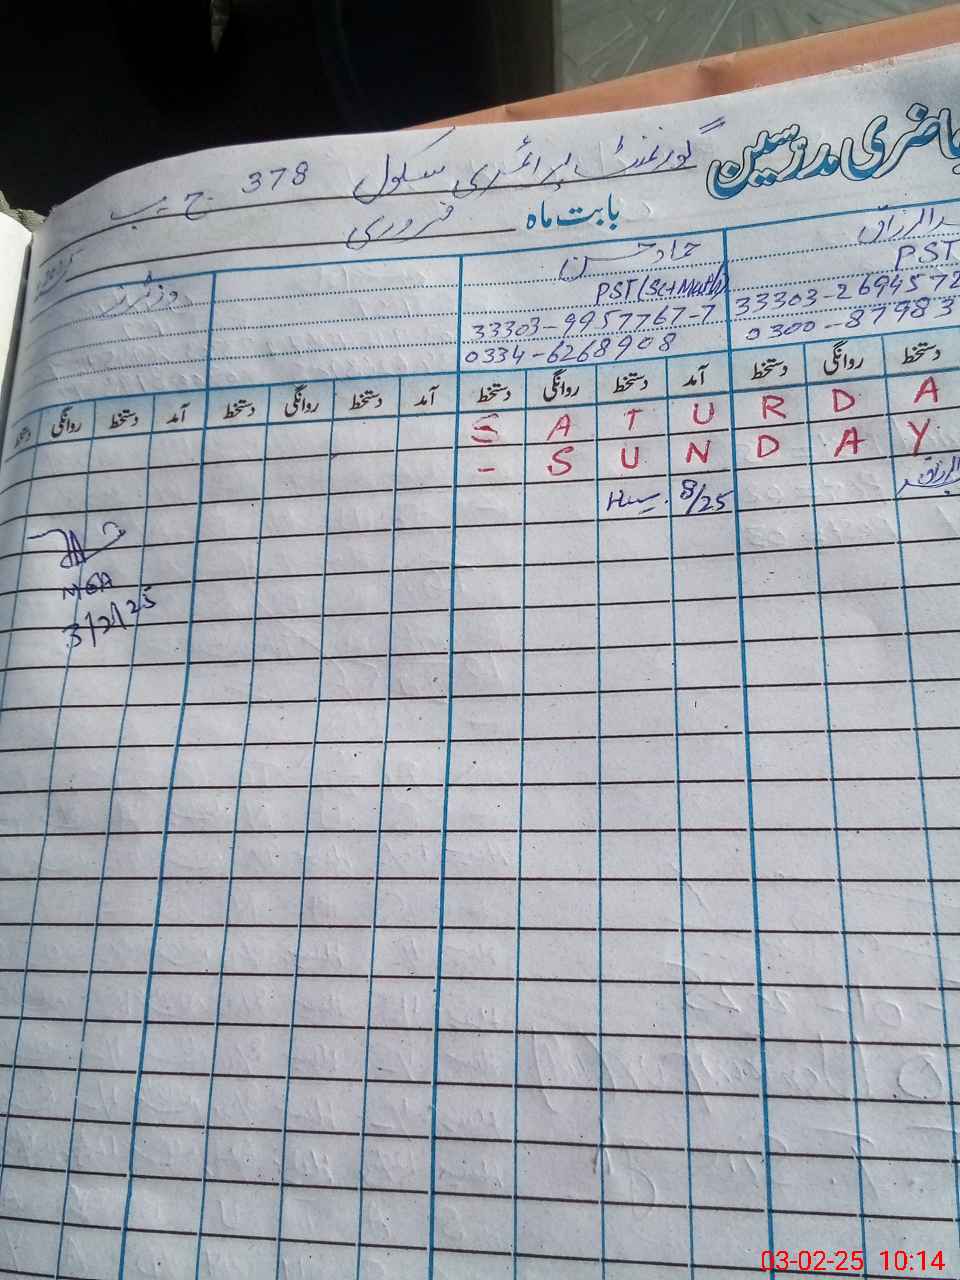 حاضری مدرسین گورنمنٹ پرائمری سکول 378 ج۔ب
بابت ماہ فروری
عبدالرزاق حماد حسن وزیٹرز
PST PST (Sc+Math)
33303-2694572 33303-9957767-7
0300-87983 0334-6268908
دستخط روانگی دستخط آمد دستخط روانگی دستخط آمد دستخط روانگی دستخط آمد دستخط روانگی دستخط
S A T U R D A
- S U N D A Y
8/25
MEA
3/2/25
03-02-25 10:14